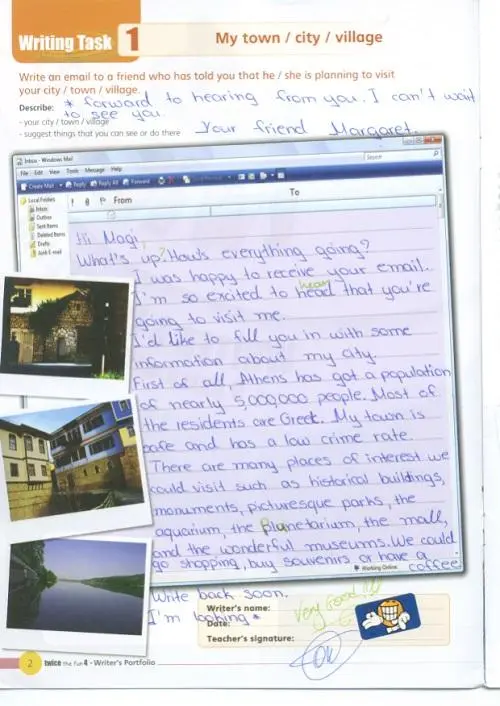 Writing Task 1
My town / city / village
Write an email to a friend who has told you that he / she is planning to visit
your city / town / village.
Describe: * forward to hearing from you. I can't wait
to see you.
- your city / town / village
- suggest things that you can see or do there
Your friend Margaret.
Inbox - Windows Mail
Search
File Edit View Tools Message Help
Create Mail Reply Reply All Forward
Local Folders
Inbox
Outbox
Sent Items
Deleted Items
Drafts
Junk E-mail
From
To
Hi Magi,
What's up? How's everything going?
I was happy to receive your email.
hear
I'm so excited to head that you're
going to visit me.
I'd like to fill you in with some
information about my city.
First of all, Athens has got a population
of nearly 5,000,000 people. Most of
the residents are Greek. My town is
safe and has a low crime rate.
There are many places of interest we
could visit such as historical buildings,
monuments, picturesque parks, the
aquarium, the Planetarium, the mall,
and the wonderful museums. We could
go shopping, buy souvenirs or have a
coffee
Working Online
Write back soon.
I'm looking *
Writer's name:
Very Good!!!
Date:
Teacher's signature:
2 twice the fun 4 - Writer's Portfolio